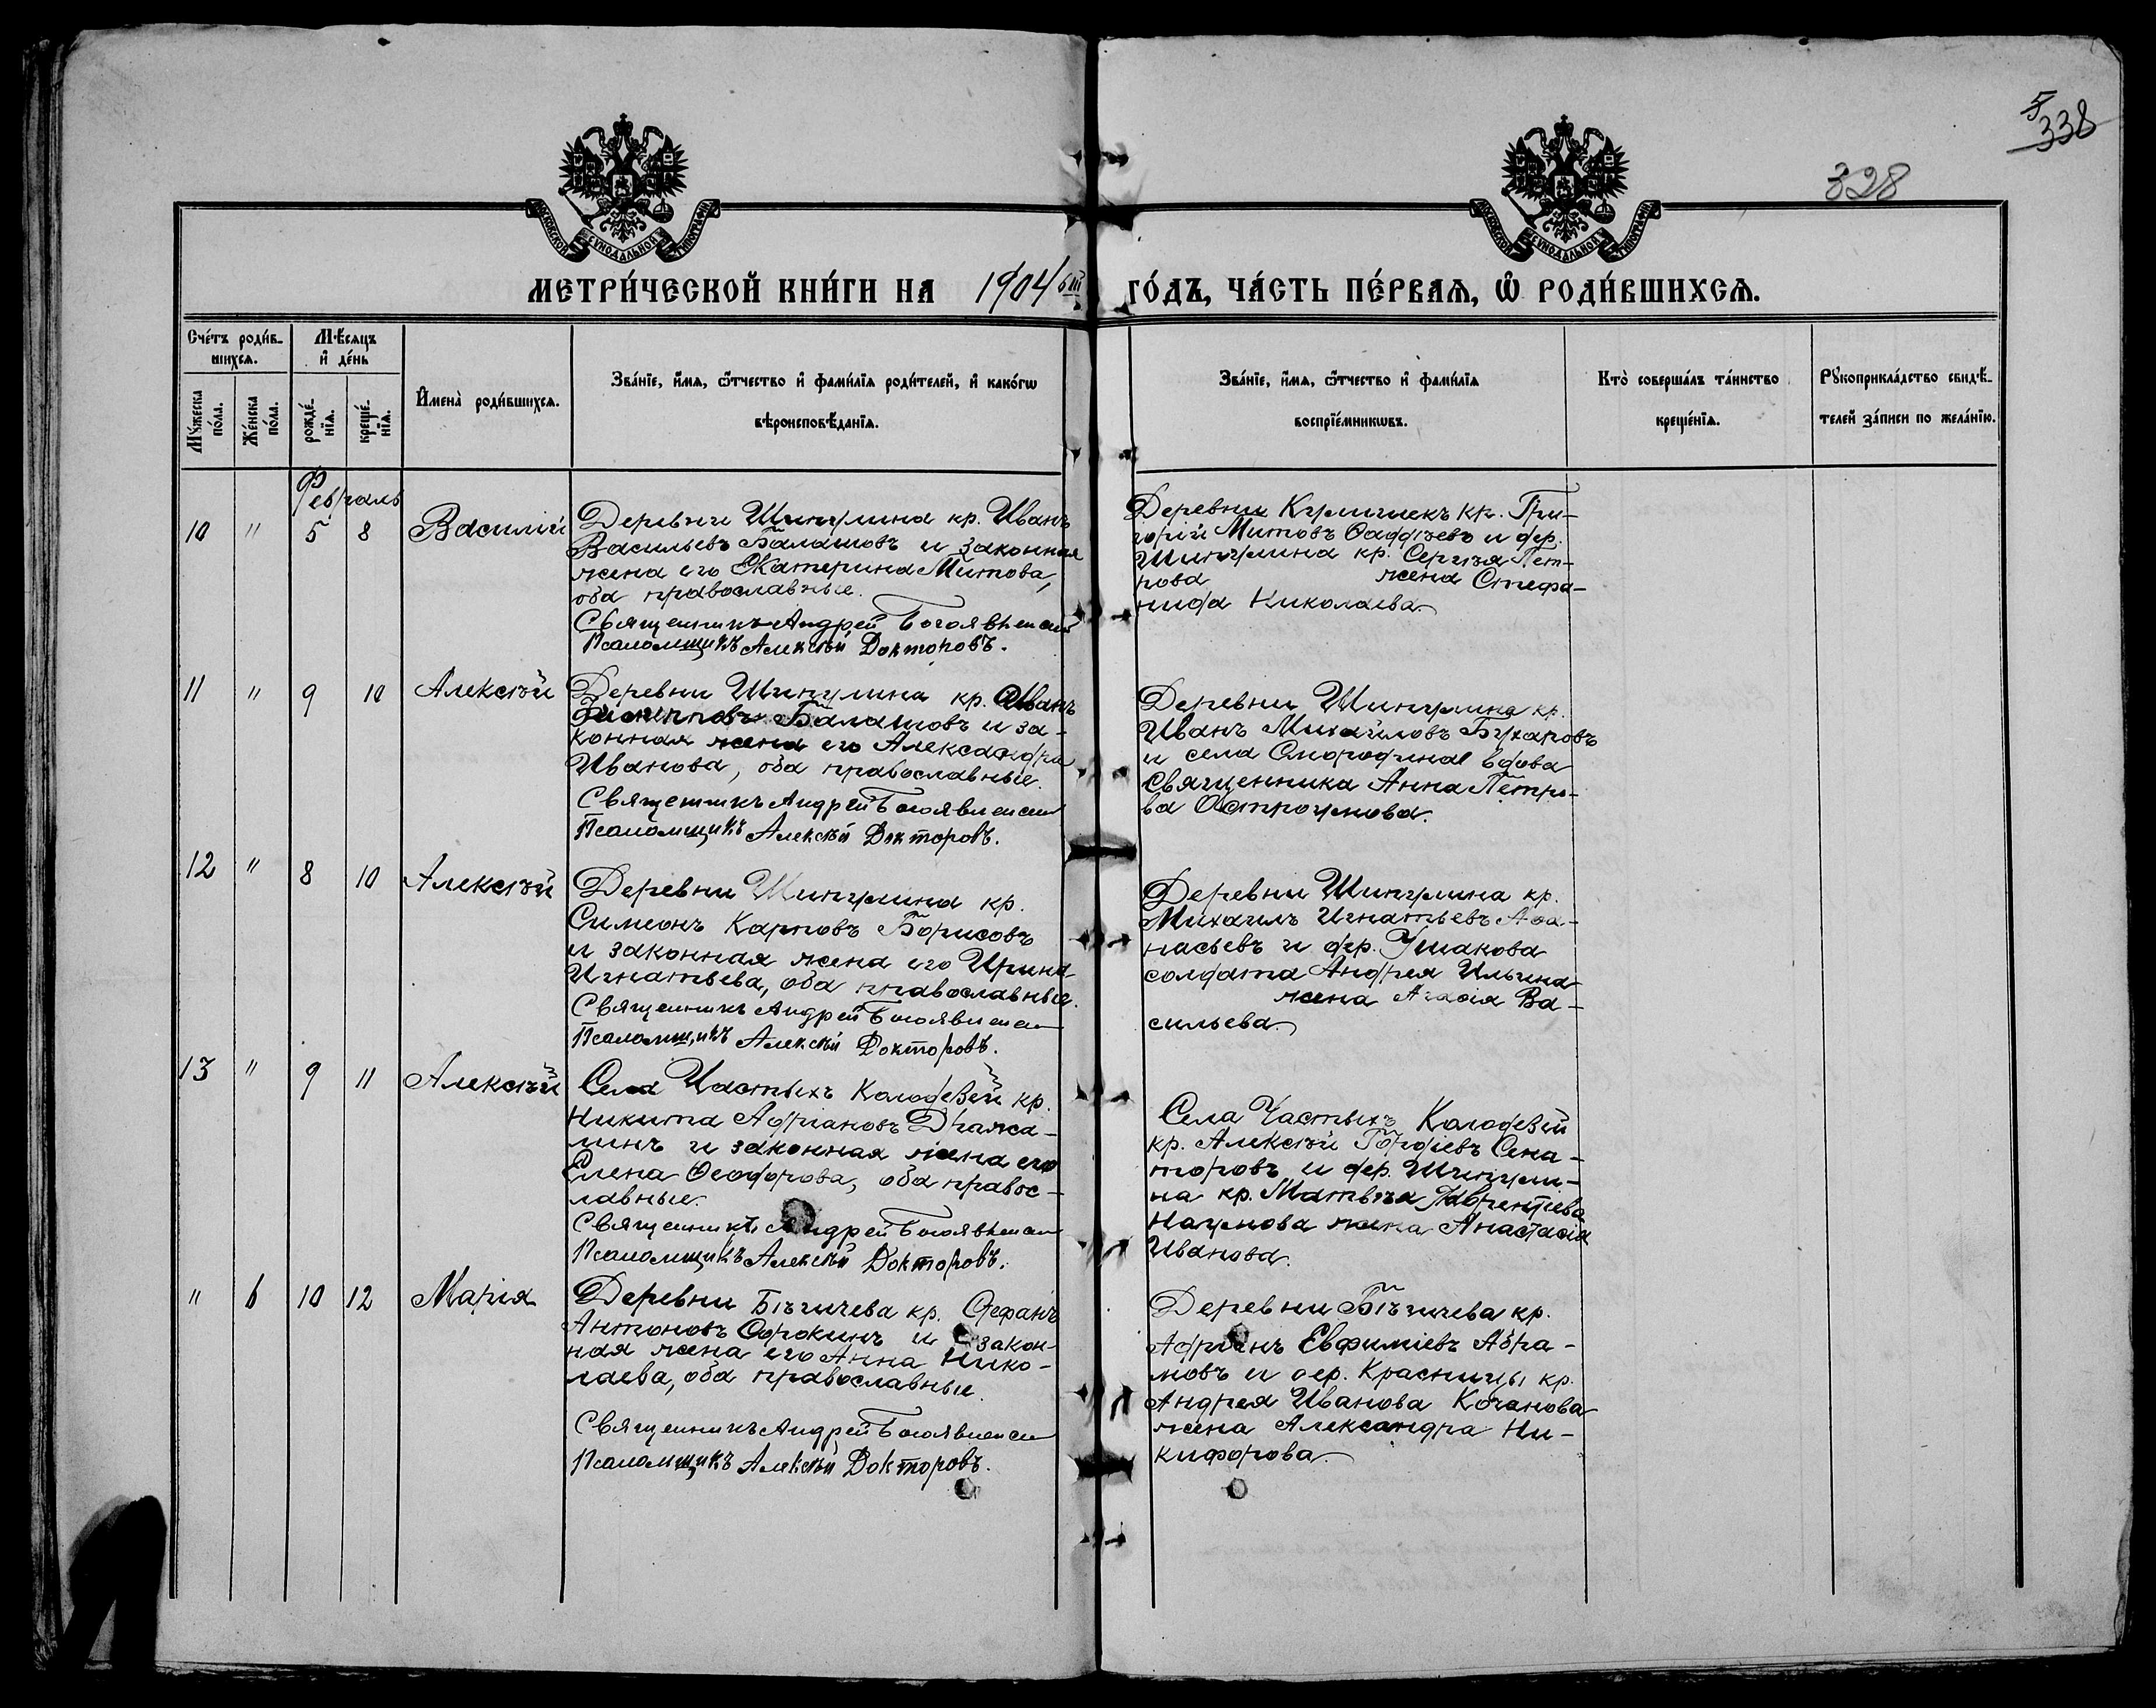 5
338
328
МОСКОВСКОЙ СѴНОДАЛЬНОЙ ТИПОГРАФІИ
МОСКОВСКОЙ СѴНОДАЛЬНОЙ ТИПОГРАФІИ
МЕТРИ́ЧЕСКОЙ КНИ́ГИ НА 1904 ый ГО́ДЪ, ЧА́СТЬ ПЕ́РВАѦ, Ѡ҆ РОДИ́ВШИХСѦ.
Сче́тъ роди́в-
шихсѧ.
Мѣ́сѧцъ
и҆ де́нь
Мꙋ́жеска
по́ла.
Же́нска
по́ла.
рожде́-
нїѧ.
креще́-
нїѧ.
И҆мена̀ роди́вшихсѧ.
Зва́нїе, и҆́мѧ, ѻ҆́тчество и҆ фами́лїѧ роди́телей, и҆ како́гѡ
вѣроисповѣ́данїѧ.
Зва́нїе, и҆́мѧ, ѻ҆́тчество и҆ фами́лїѧ
воспрїе́мникѡвъ.
Кто̀ соверша́лъ та́инство
креще́нїѧ.
Рꙋкоприкла́дство свидѣ́-
телей за́писи по жела́нїю.
Февраль
10 " 5 8 Василій
Деревни Шипулина кр. Иванъ
Васильевъ Балашовъ и законная
жена его Екатерина Титова,
оба православные.
Священникъ Андрей Богоявленскій
Псаломщикъ Алексѣй Докторовъ.
Деревни Кгри-
горій Титовъ Фаддѣевъ и дер.
Шипулина кр. Сергѣя Пет-
рова жена Стефа-
нида Николаева
11 " 9 10 Алексѣй
Деревни Шипулина кр. Иванъ
Балашовъ и за-
конная жена его Александра
Иванова, оба православные.
Священникъ Андрей Богоявленскій
Псаломщикъ Алексѣй Докторовъ.
Деревни Шипулина кр.
Иванъ Михайловъ Бухаровъ
и села Смородинае вдова
священника Анна Петро-
ва Остроумова.
12 " 8 10 Алексѣй
Деревни Шипулина кр.
Симеонъ Карповъ Борисовъ
и законная жена его Ирина
Игнатьева, оба православные.
Священникъ Андрей Богоявленскій
Псаломщикъ Алексѣй Докторовъ.
Деревни Шипулина кр.
Михаилъ Игнатьевъ Аѳа-
насьевъ и дер. Ушакова
солдата Андрея Ильина
жена Агаѳія Ва-
сильева.
13 " 9 11 Алексѣй
Села Частыхъ Колодезей кр.
Никита Адріановъ Дража-
линъ и законная жена его
Елена Ѳеодорова, оба правос-
лавные.
Священникъ Андрей Богоявленскій
Псаломщикъ Алексѣй Докторовъ.
Села Частыхъ Колодезей
кр. Алексѣй Гордіевъ Сена-
торовъ и дер. Шипули-
на кр. Матвѣя Лаврентіева
Наумова жена Анастасія
Иванова.
" 6 10 12 Марія
Деревни Бѣгичева кр. Стефанъ
Антоновъ Сорокинъ и закон-
ная жена его Анна Нико-
лаева, оба православные.
Священникъ Андрей Богоявленскій
Псаломщикъ Алексѣй Докторовъ.
Деревни Бѣгичева кр.
Адріанъ Евфиміевъ Абра-
мовъ и дер. Красницы кр.
Андрея Иванова Кочанова
жена Александра Ни-
кифорова.